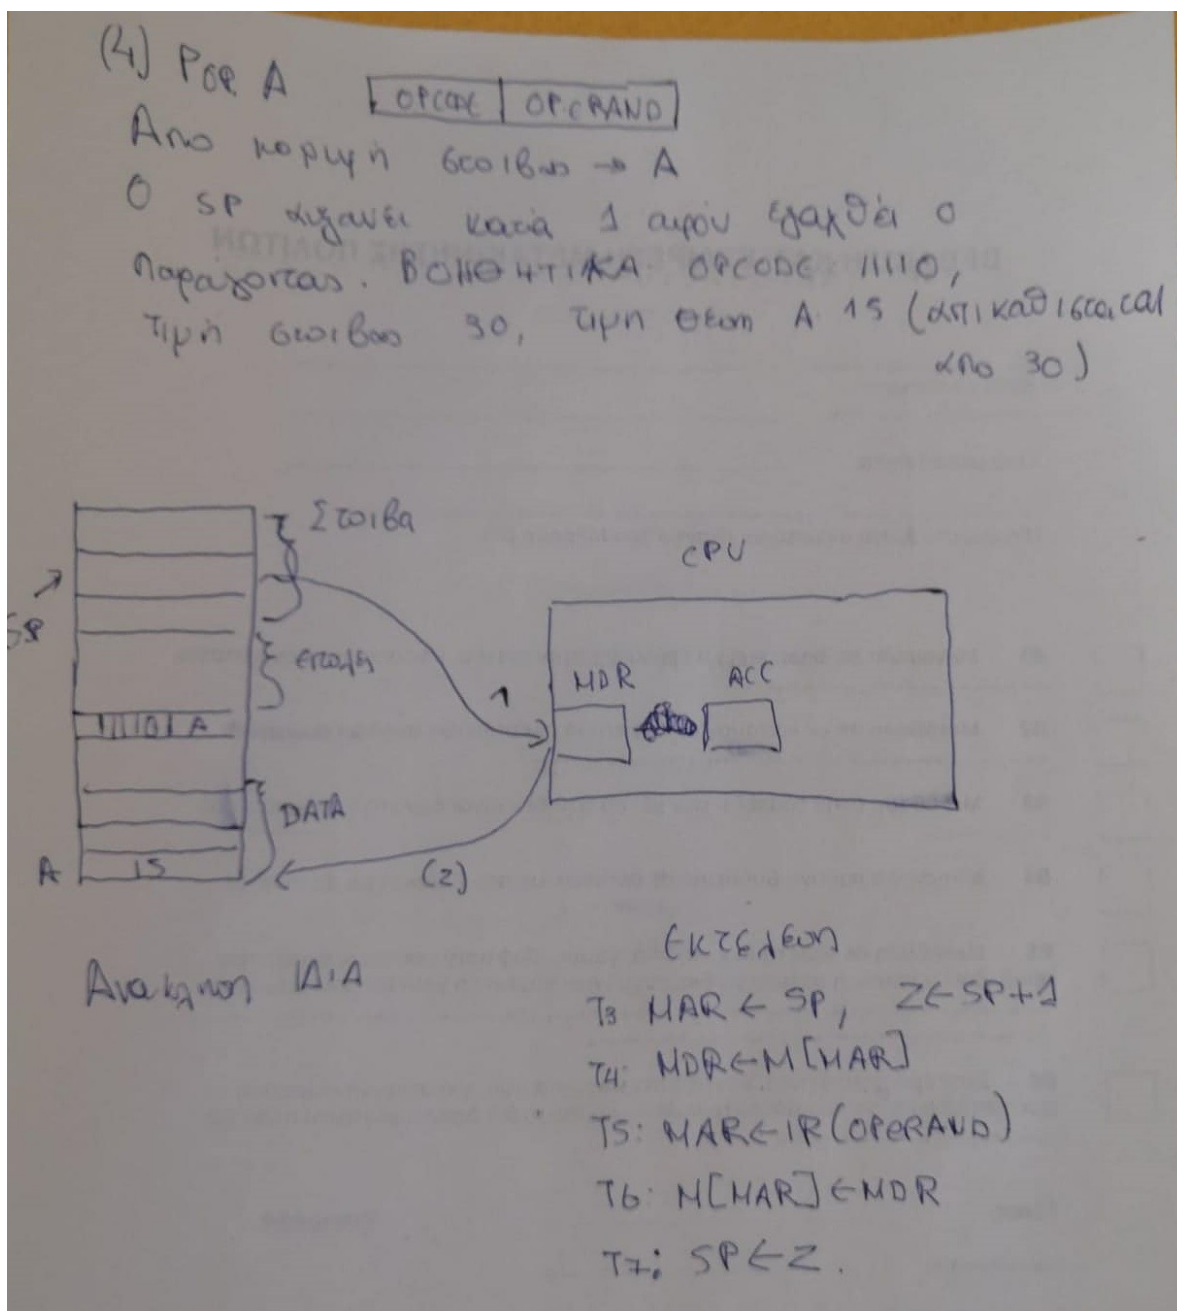 (4) POP A
OPCODE OPERAND
Απο κορυφή στοιβας → A
Ο SP αυξανει κατα 1 αφού εξαχθεί ο
παραγοντας. ΒΟΗΘΗΤΙΚΑ OPCODE 11110,
Τιμή στοιβας 30, τιμη θεση A 15 (αντικαθισταται
απο 30)
Στοιβα
CPU
SP
εντολη
MDR ACC
1
11110 A
DATA
A 15
(2)
Εκτελεση
Ανακληση ΙΔΙΑ
T3 MAR ← SP, Z ← SP+1
T4: MDR ← M[MAR]
T5: MAR ← IR(OPERAND)
T6: M[MAR] ← MDR
T7: SP ← Z.